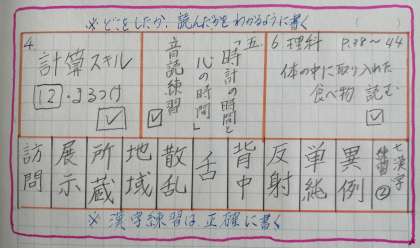 ※どこをしたか、読んだらわかるように書く
四.
計算スキル
12・まるつけ
五.
「時計の時間と
心の時間」
音読練習
6 理科 P.38〜44
体の中に取り入れた
食べ物 読む
七 漢字
練習②
異例
単純
反射
背中
舌
散乱
地域
所蔵
展示
訪問
※漢字練習は正確に書く